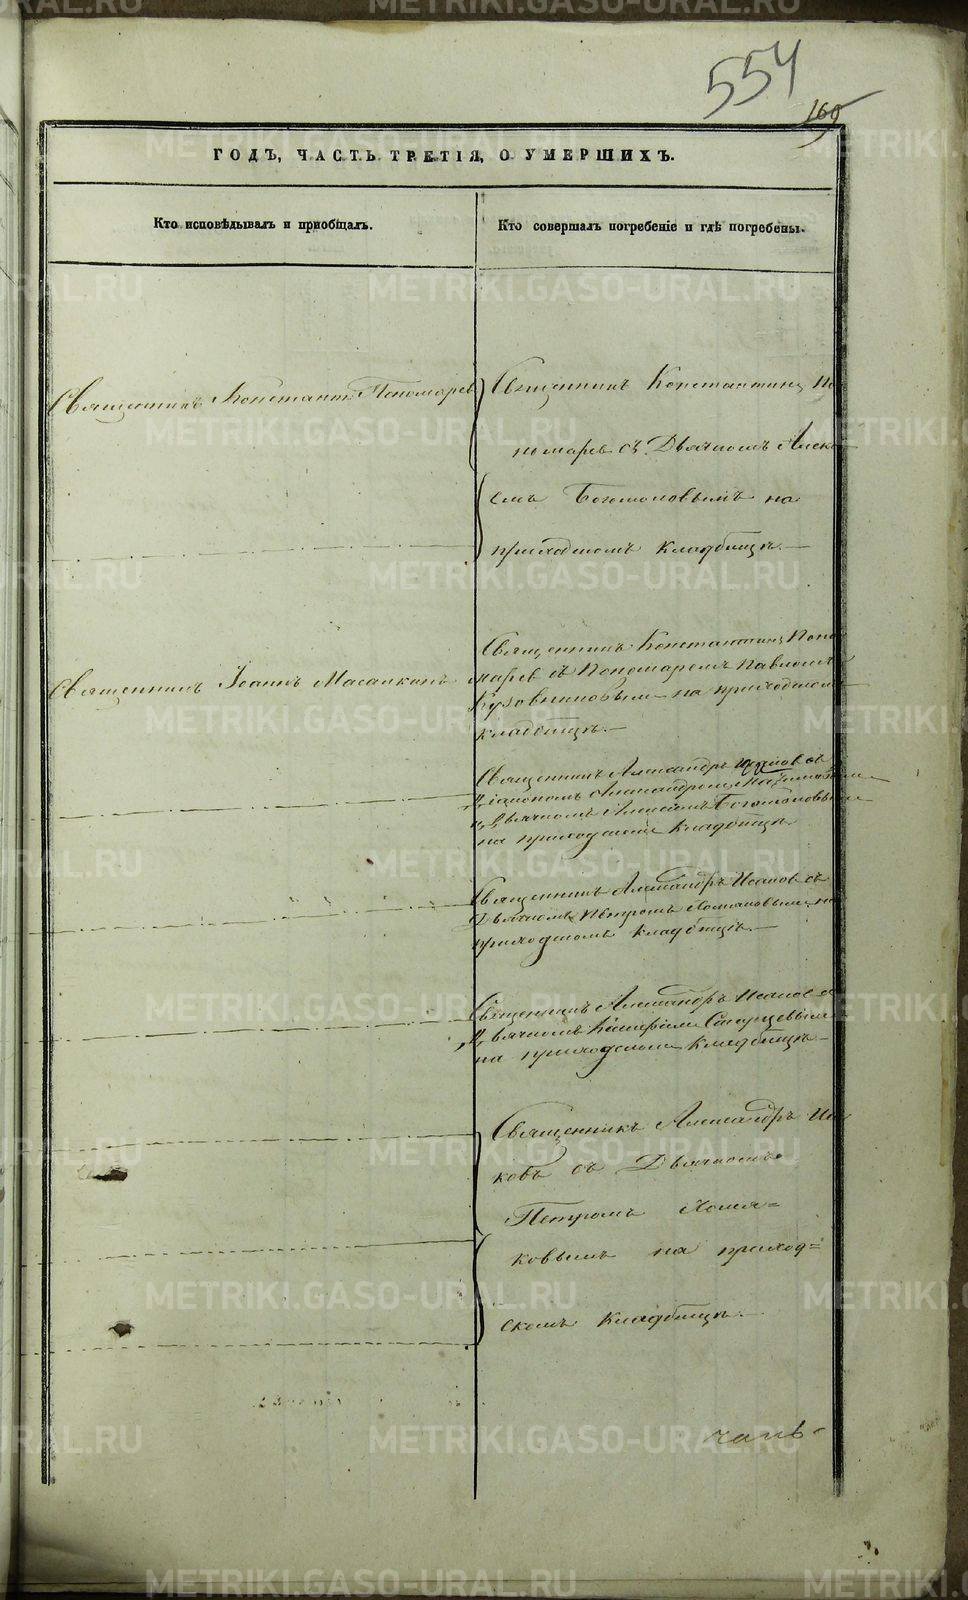 554
169
ГОДЪ, ЧАСТЬ ТРЕТІЯ, О УМЕРШИХЪ.
Кто исповѣдывалъ и пріобщалъ.
Кто совершалъ погребеніе и гдѣ погребены.
Священникъ Константинъ Пономаревъ
Священникъ Константинъ По
номаревъ съ Дьячкомъ Алекс
емъ Богомоловымъ на
приходскомъ кладбищѣ.—
Священникъ Іоаннъ
Священникъ Константинъ Поно
маревъ съ Пономаремъ Павломъ
на приходском
кладбищѣ.—
Священникъ Александръ съ
Діакономъ Александромъ
и Дьячкомъ Алексѣемъ Богомоловымъ
на приходскомъ кладбищѣ
Священникъ Александръ съ
Дьячкомъ Петромъ на
приходскомъ кладбищѣ.—
Священникъ Александръ съ
Дьячкомъ Старцевымъ
на приходскомъ кладбищѣ—
Священникъ Александръ
ковъ съ Дьячкомъ
Петромъ
ковымъ на приход=
скомъ кладбищѣ.—
METRIKI.GASO-URAL.RU